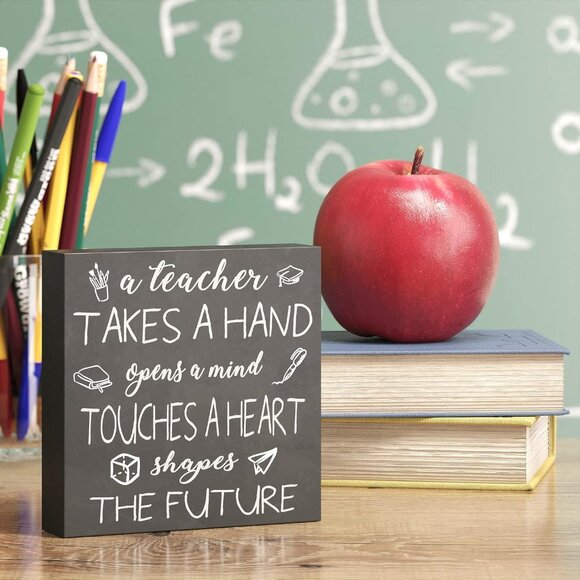 Fe
2H₂O
a teacher
TAKES A HAND
opens a mind
TOUCHES A HEART
shapes
THE FUTURE